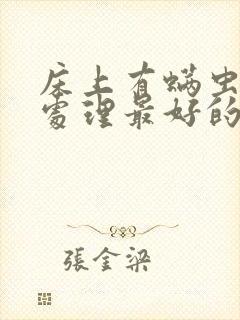 床上有螨虫
处理最好的
張金梁